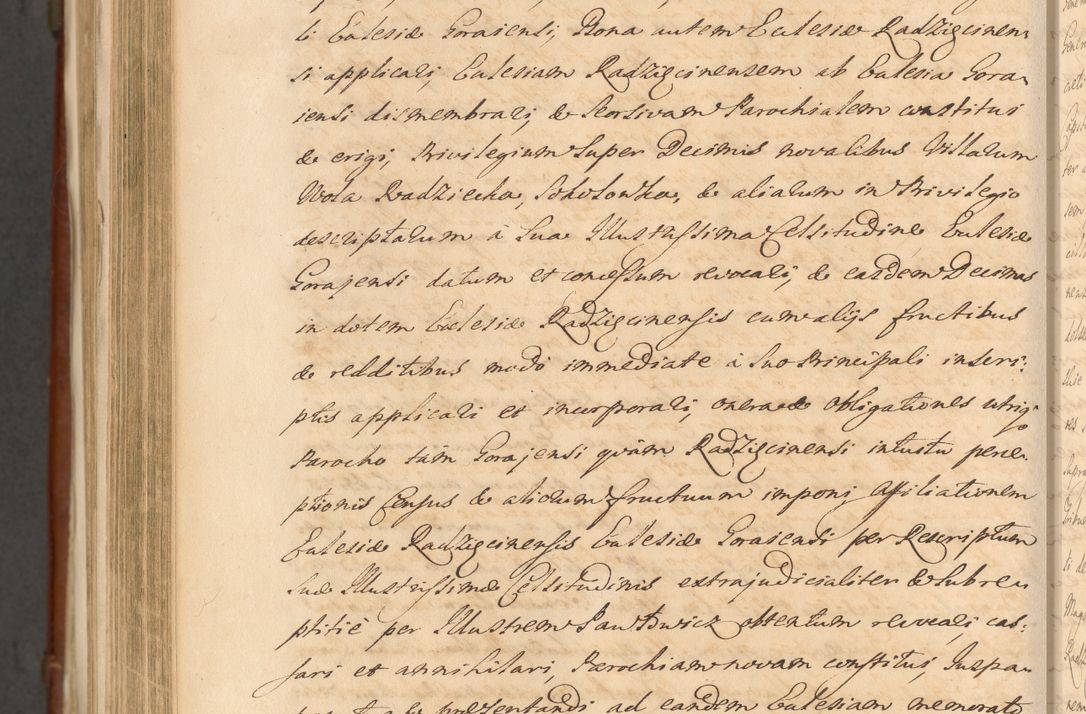 ti Ecclesiæ Gorajensi, Bona autem Ecclesiæ Radzięcinen
si applicari, Ecclesiam Radzięcinensem ab Ecclesia Gora
jensi dismembrari, & Seorsivam Parochialem constitui
& erigi, Privilegium Super Decimis novalibus Villarum
Wola Radziecka, Sokołowka, & aliarum in Privilegio
descriptarum à Sua Illustrissima Celsitudine Ecclesiæ
Gorajensi datum et concessum revocari, & easdem Decimas
in dotem Ecclesiæ Radzięcinensis cum alijs fructibus
& redditibus modo immediate à Suo Principali inscri:
ptis applicari et incorporari, onera & obligationes utriq
Parocho tàm Gorajensi quàm Radzięcinensi intuitu perce
ptionis Census & aliorum fructuum imponi, Affiliationem
Ecclesiæ Radzięcinensis Ecclesiæ Goraiensi per Rescriptum
Suæ Illustrissimæ Celsitudinis extrajudicialiter & Subre
ptitiè per Illustrem obtentum revocari, cas:
sari et annihilari, Parochiam novam constitui, Juspa
præsentandi ad eandem Ecclesiam memorato